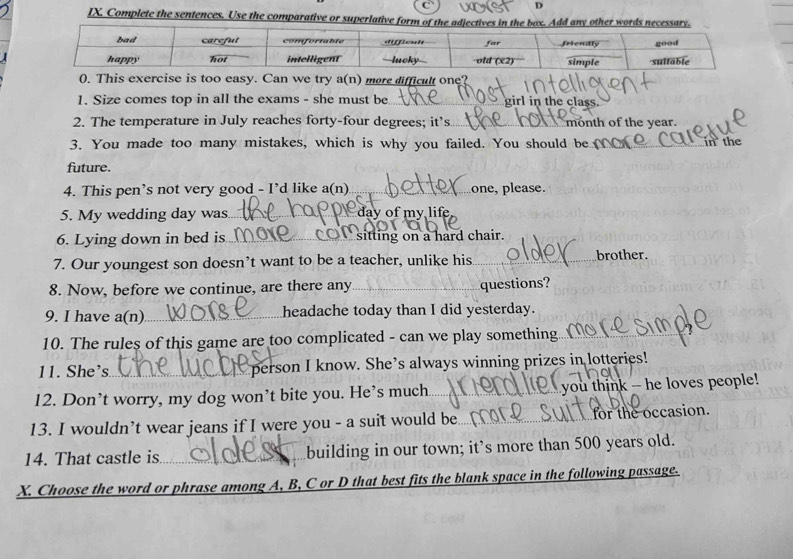 C worst D
IX. Complete the sentences. Use the comparative or superlative form of the adjectives in the box. Add any other words necessary.
bad careful comfortable difficult far friendly good
happy hot intelligent lucky old (x2) simple suitable
0. This exercise is too easy. Can we try a(n) more difficult one?
1. Size comes top in all the exams - she must be the most intelligent girl in the class.
2. The temperature in July reaches forty-four degrees; it's the hottest month of the year.
3. You made too many mistakes, which is why you failed. You should be more carefue in the
future.
4. This pen's not very good - I'd like a(n) better one, please.
5. My wedding day was the happiest day of my life.
6. Lying down in bed is more comdortable sitting on a hard chair.
7. Our youngest son doesn't want to be a teacher, unlike his older brother.
8. Now, before we continue, are there any questions?
9. I have a(n) worse headache today than I did yesterday.
10. The rules of this game are too complicated - can we play something more simple?
11. She's the luckiest person I know. She's always winning prizes in lotteries!
12. Don't worry, my dog won't bite you. He's much friendlier than you think – he loves people!
13. I wouldn't wear jeans if I were you - a suit would be more suitable for the occasion.
14. That castle is oldest building in our town; it's more than 500 years old.
X. Choose the word or phrase among A, B, C or D that best fits the blank space in the following passage.